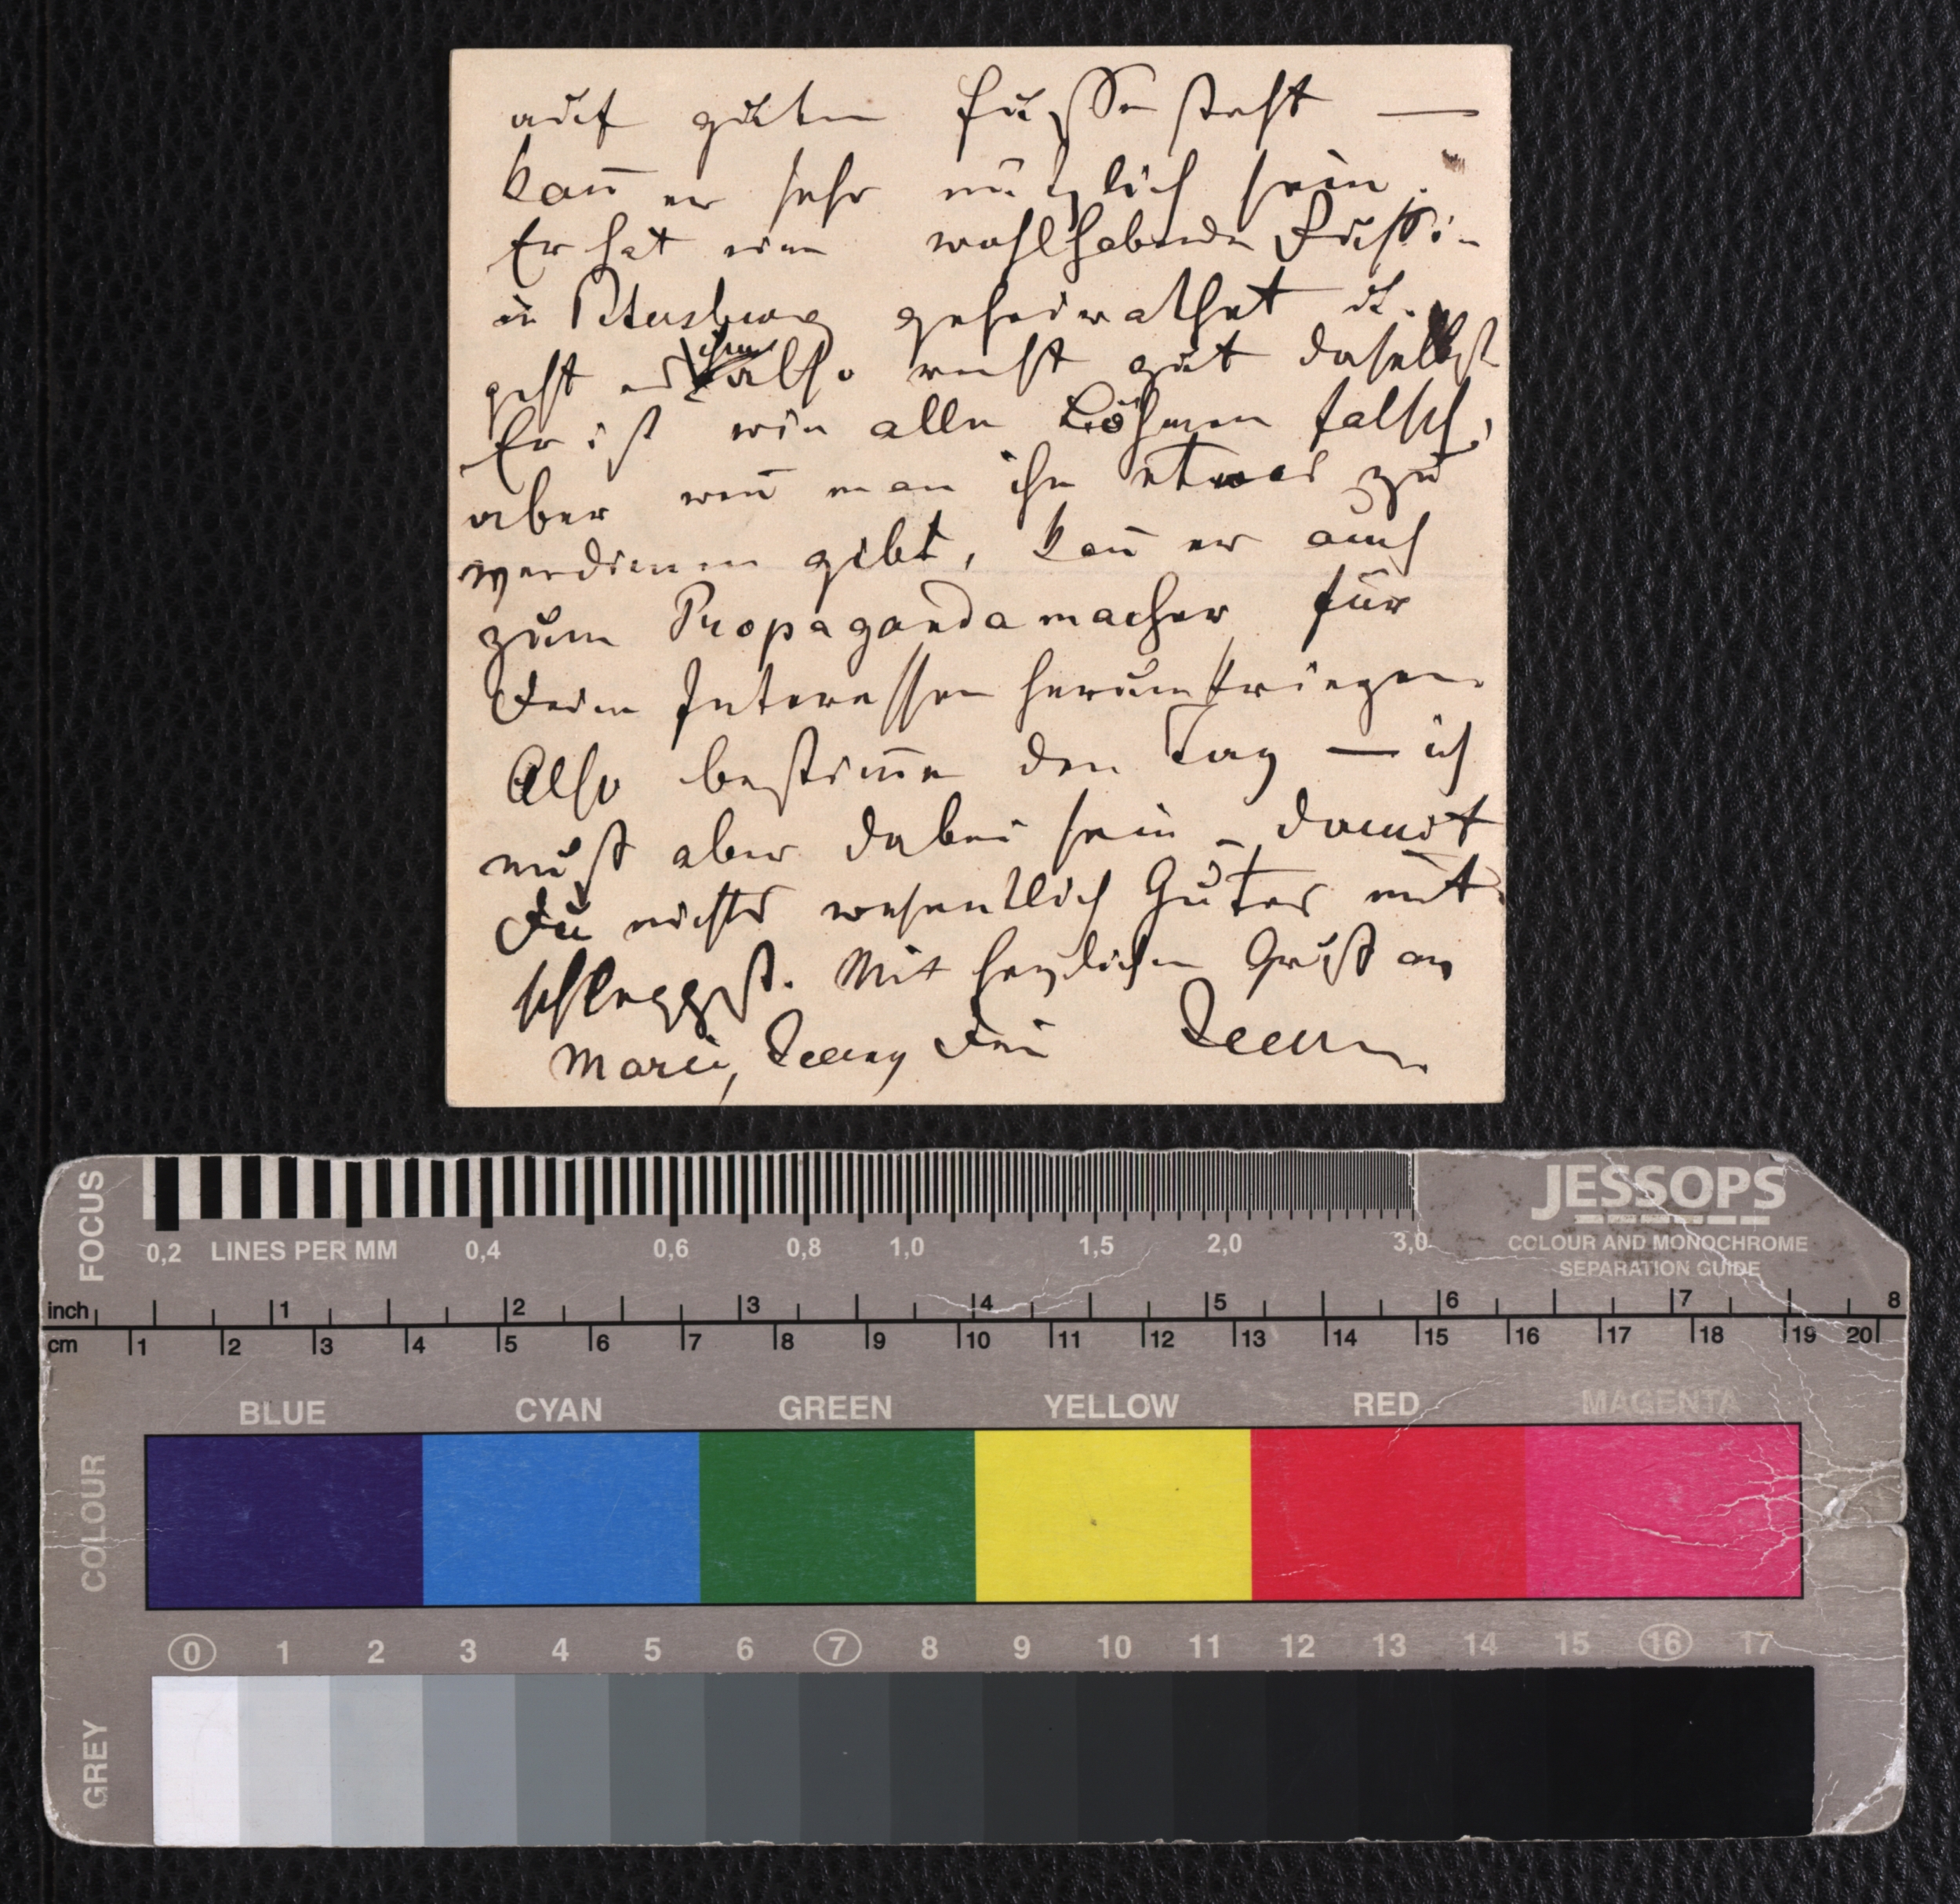 auf gutem Fuße steht —
kan̄ er sehr nützlich sein.
Er hat eine wohlhabende Russin
in Petersburg geheirathet u.
geht es ihm also recht gut daselbst
Er ist wie alle Böhmen falsch,
aber wen̄ man ihn etwas zu
verdienen gibt, kan̄ er auch
zum Propagandamacher für
Deine Interessen herumkriegen.
Also bestim̄e den Tag — ich
muß aber dabei sein – damit
Du nichts wesentlich Gutes mit
schleppst. Mit herzlichen Gruß an
Marie, Dein
FOCUS
0,2 LINES PER MM 0,4 0,6 0,8 1,0 1,5 2,0 3,0
JESSOPS
COLOUR AND MONOCHROME
SEPARATION GUIDE
inch 1 2 3 4 5 6 7 8
cm 1 2 3 4 5 6 7 8 9 10 11 12 13 14 15 16 17 18 19 20
BLUE CYAN GREEN YELLOW RED MAGENTA
COLOUR
0 1 2 3 4 5 6 7 8 9 10 11 12 13 14 15 16 17
GREY